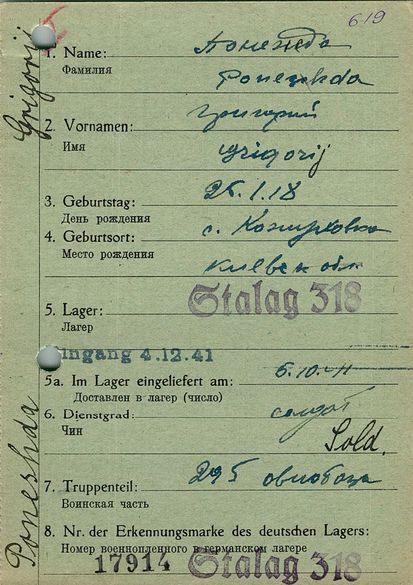 619
Grigorij
1. Name: Понежда
Фамилия Poneshda
2. Vornamen: Григорий
Имя Grigorij
3. Geburtstag: 25.1.18
День рождения
4. Geburtsort: с.
Место рождения Киевск обл
5. Lager: Stalag 318
Лагер
Eingang 4.12.41
5a. Im Lager eingeliefert am: 6.10.41
Доставлен в лагер (число)
6. Dienstgrad: солдат
Чин Sold.
7. Truppenteil: 295
Воинская часть
8. Nr. der Erkennungsmarke des deutschen Lagers:
Номер военнопленного в германском лагере
17914 Stalag 318
Poneshda